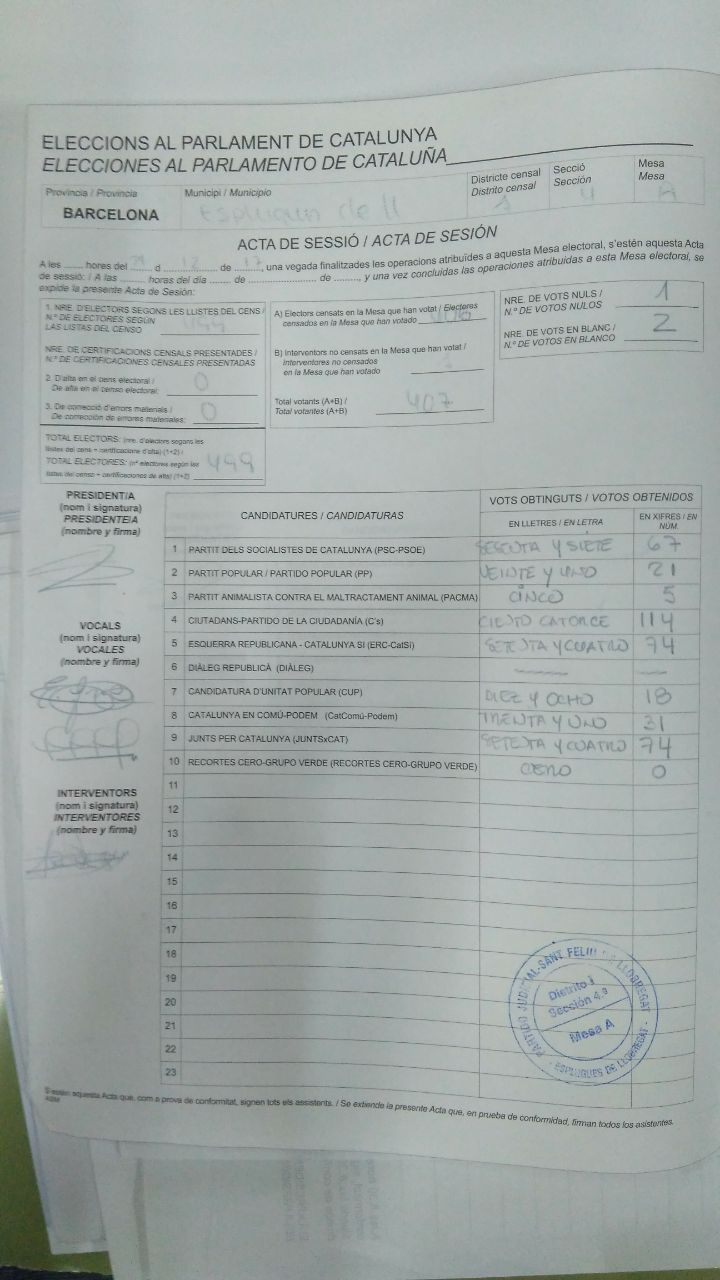 ELECCIONS AL PARLAMENT DE CATALUNYA
ELECCIONES AL PARLAMENTO DE CATALUÑA
Província / Provincia
Municipi / Municipio
Districte censal
Distrito censal
Secció
Sección
Mesa
Mesa
BARCELONA
de ll
1
4
A
ACTA DE SESSIÓ / ACTA DE SESIÓN
A les ...... hores del ...... d ............... de ......, una vegada finalitzades les operacions atribuïdes a aquesta Mesa electoral, s'estén aquesta Acta
de sessió: / A las ...... horas del día ...... de ............... de ......, y una vez concluidas las operaciones atribuidas a esta Mesa electoral, se
expide la presente Acta de Sesión:
1. NRE. D'ELECTORS SEGONS LES LLISTES DEL CENS /
N.º DE ELECTORES SEGÚN
LAS LISTAS DEL CENSO
NRE. DE CERTIFICACIONS CENSALS PRESENTADES /
N.º DE CERTIFICACIONES CENSALES PRESENTADAS
2. D'alta en el cens electoral /
De alta en el censo electoral: 0
3. De correcció d'errors materials /
De corrección de errores materiales: 0
TOTAL ELECTORS: (nre. d'electors segons les
llistes del cens + certificacions d'alta) (1+2) /
TOTAL ELECTORES: (nº electores según las
listas del censo + certificaciones de alta) (1+2) 499
A) Electors censats en la Mesa que han votat / Electores
censados en la Mesa que han votado
B) Interventors no censats en la Mesa que han votat /
Interventores no censados
en la Mesa que han votado
Total votants (A+B) /
Total votantes (A+B) 407
NRE. DE VOTS NULS /
N.º DE VOTOS NULOS 1
NRE. DE VOTS EN BLANC /
N.º DE VOTOS EN BLANCO 2
PRESIDENT/A
(nom i signatura)
PRESIDENTE/A
(nombre y firma)
VOCALS
(nom i signatura)
VOCALES
(nombre y firma)
INTERVENTORS
(nom i signatura)
INTERVENTORES
(nombre y firma)
CANDIDATURES / CANDIDATURAS
VOTS OBTINGUTS / VOTOS OBTENIDOS
EN LLETRES / EN LETRA
EN XIFRES / EN
NÚM.
1 PARTIT DELS SOCIALISTES DE CATALUNYA (PSC-PSOE) SESENTA Y SIETE 67
2 PARTIT POPULAR / PARTIDO POPULAR (PP) VEINTE Y UNO 21
3 PARTIT ANIMALISTA CONTRA EL MALTRACTAMENT ANIMAL (PACMA) CINCO 5
4 CIUTADANS-PARTIDO DE LA CIUDADANÍA (C's) CIENTO CATORCE 114
5 ESQUERRA REPUBLICANA - CATALUNYA SI (ERC-CatSí) SETENTA Y CUATRO 74
6 DIÀLEG REPUBLICÀ (DIÀLEG)
7 CANDIDATURA D'UNITAT POPULAR (CUP) DIEZ Y OCHO 18
8 CATALUNYA EN COMÚ-PODEM (CatComú-Podem) TREINTA Y UNO 31
9 JUNTS PER CATALUNYA (JUNTSxCAT) SETENTA Y CUATRO 74
10 RECORTES CERO-GRUPO VERDE (RECORTES CERO-GRUPO VERDE) CERO 0
11
12
13
14
15
16
17
18
19
20
21
22
23
PARTIDO JUDICIAL-SANT FELIU DE LLOBREGAT
Distrito I
Sección 4.ª
Mesa A
- ESPLUGUES DE LLOBREGAT -
S'estén aquesta Acta que, com a prova de conformitat, signen tots els assistents. / Se extiende la presente Acta que, en prueba de conformidad, firman todos los asistentes.